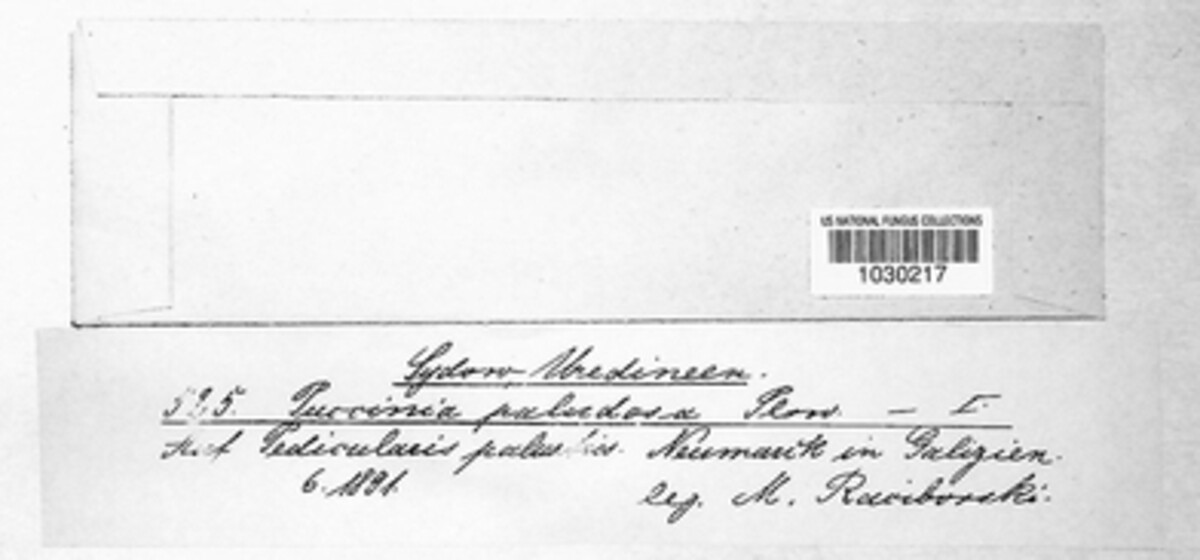 US NATIONAL FUNGUS COLLECTIONS
1030217
Sydow, Uredineen.
525. Puccinia paludosa Plow. — I.
Auf Pedicularis palustris. Neumarkt in Galizien.
6. 1891.
leg. M. Raciborski.